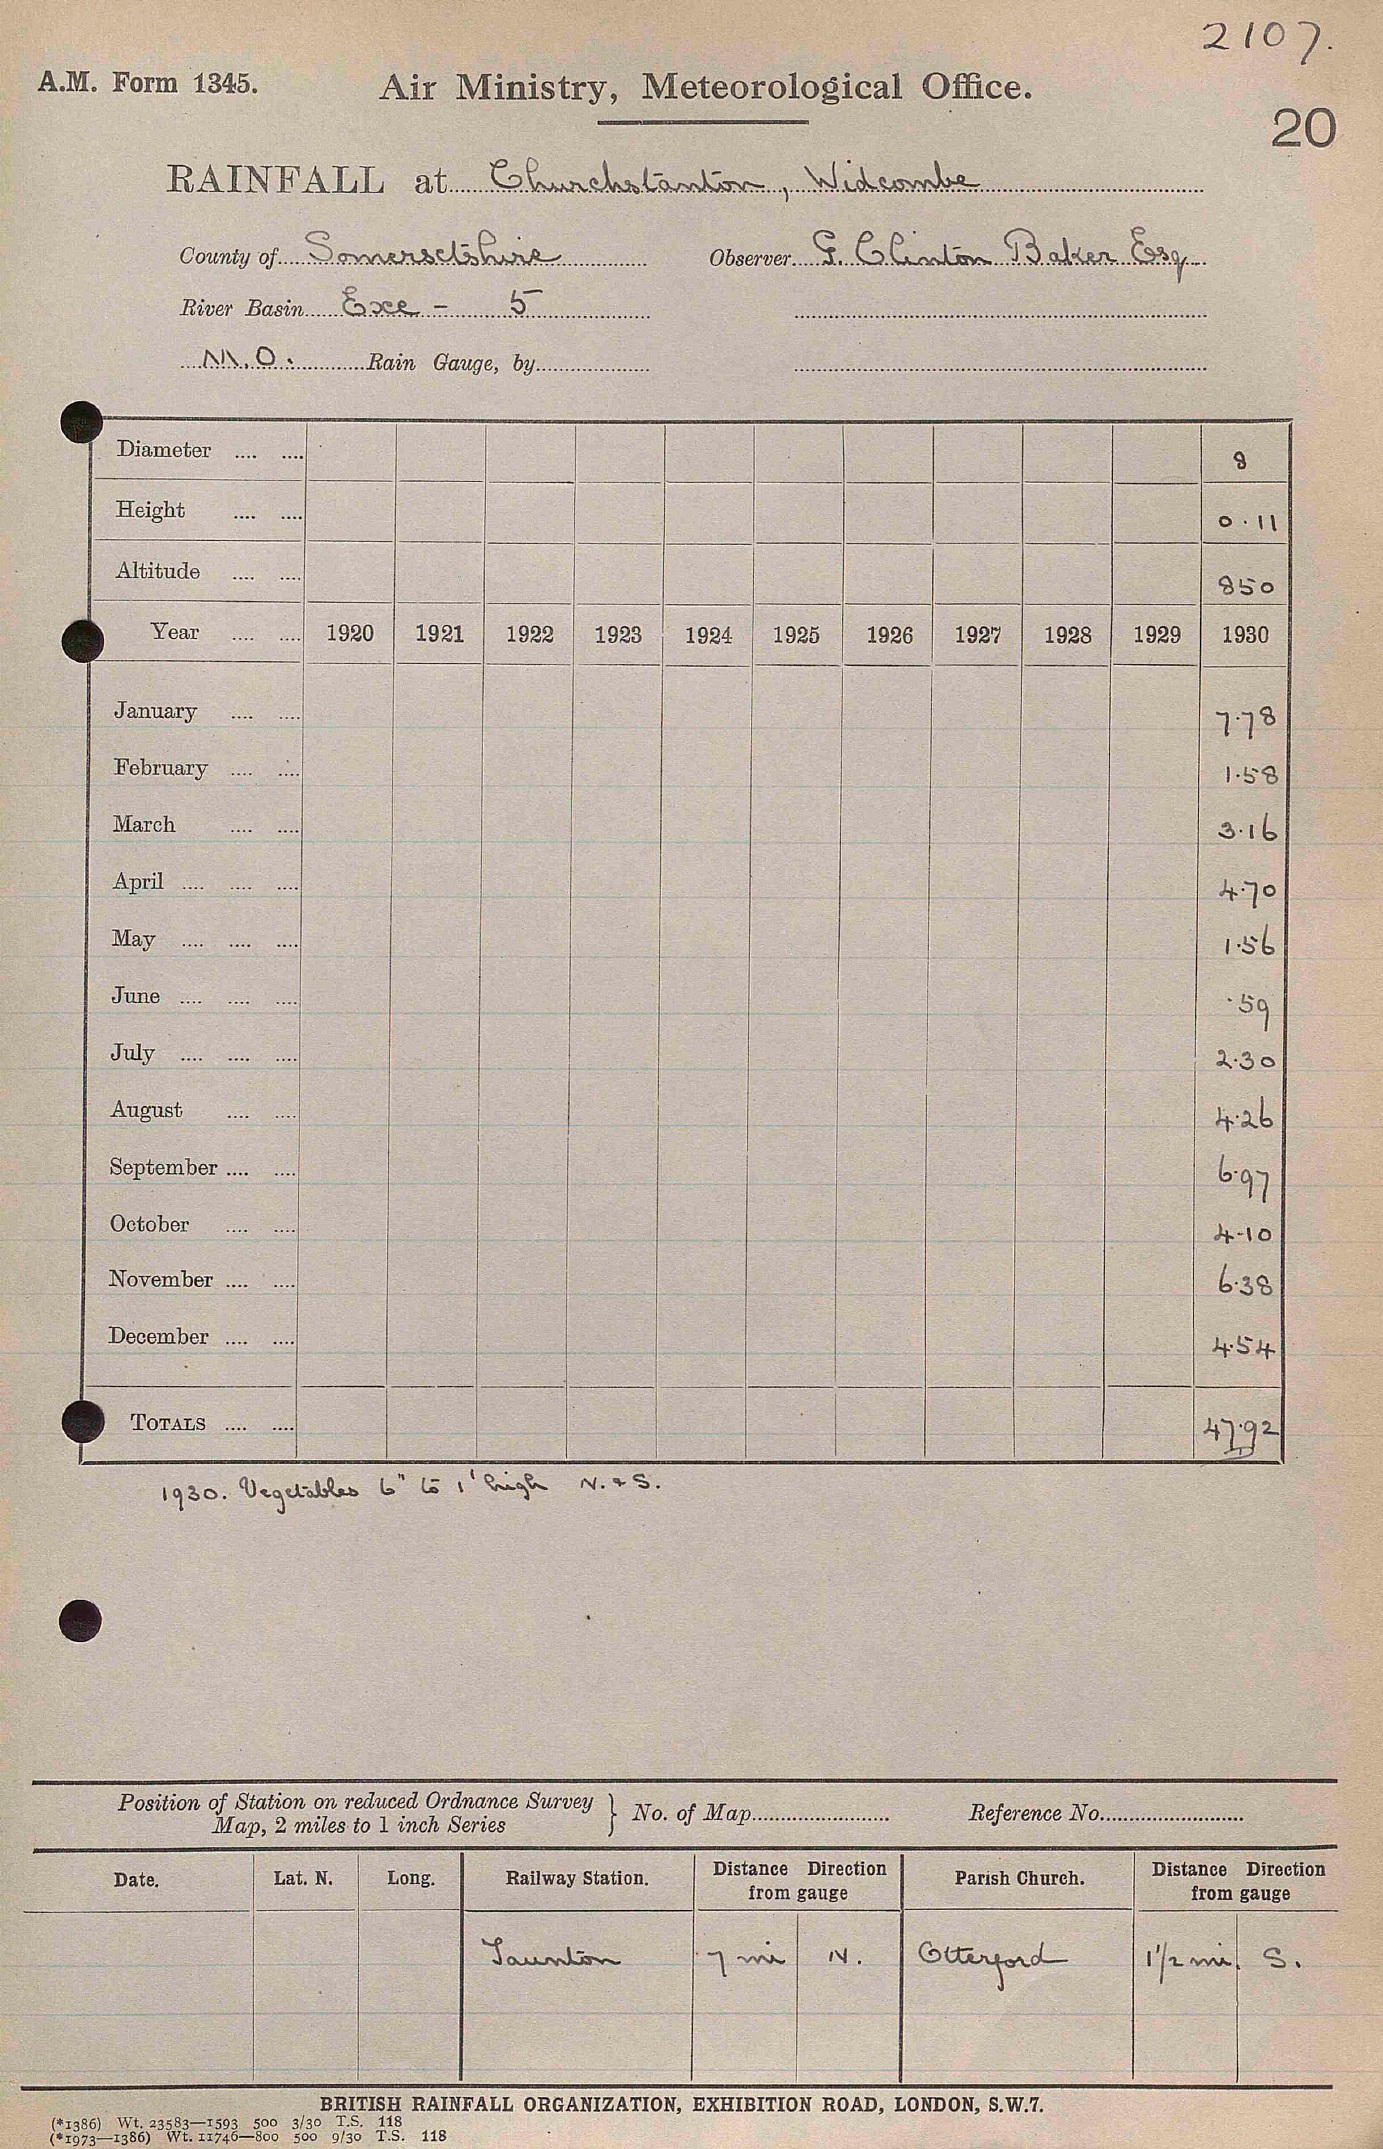 2107.
A.M. Form 1345. Air Ministry, Meteorological Office.
20
RAINFALL at Churchstanton, Widcombe
County of Somersetshire Observer G. Clinton Baker Esq
River Basin Exe - 5
M.O. Rain Gauge, by
Diameter .... .... 8
Height .... .... 0.11
Altitude .... .... 850
Year .... .... 1920 1921 1922 1923 1924 1925 1926 1927 1928 1929 1930
January .... .... 7.78
February .... .... 1.58
March .... .... 3.16
April .... .... .... 4.70
May .... .... .... 1.56
June .... .... .... .59
July .... .... .... 2.30
August .... .... 4.26
September .... .... 6.97
October .... .... 4.10
November .... .... 6.38
December .... .... 4.54
TOTALS .... .... 47.92
1930. Vegetables 6" to 1' high N. & S.
Position of Station on reduced Ordnance Survey
Map, 2 miles to 1 inch Series } No. of Map Reference No.
Date. Lat. N. Long. Railway Station. Distance Direction from gauge Parish Church. Distance Direction from gauge
Taunton 7 mi N. Otterford 1 1/2 mi. S.
BRITISH RAINFALL ORGANIZATION, EXHIBITION ROAD, LONDON, S.W.7.
(*1386) Wt. 23583—1593 500 3/30 T.S. 118
(*1973—1386) Wt. 11746—800 500 9/30 T.S. 118